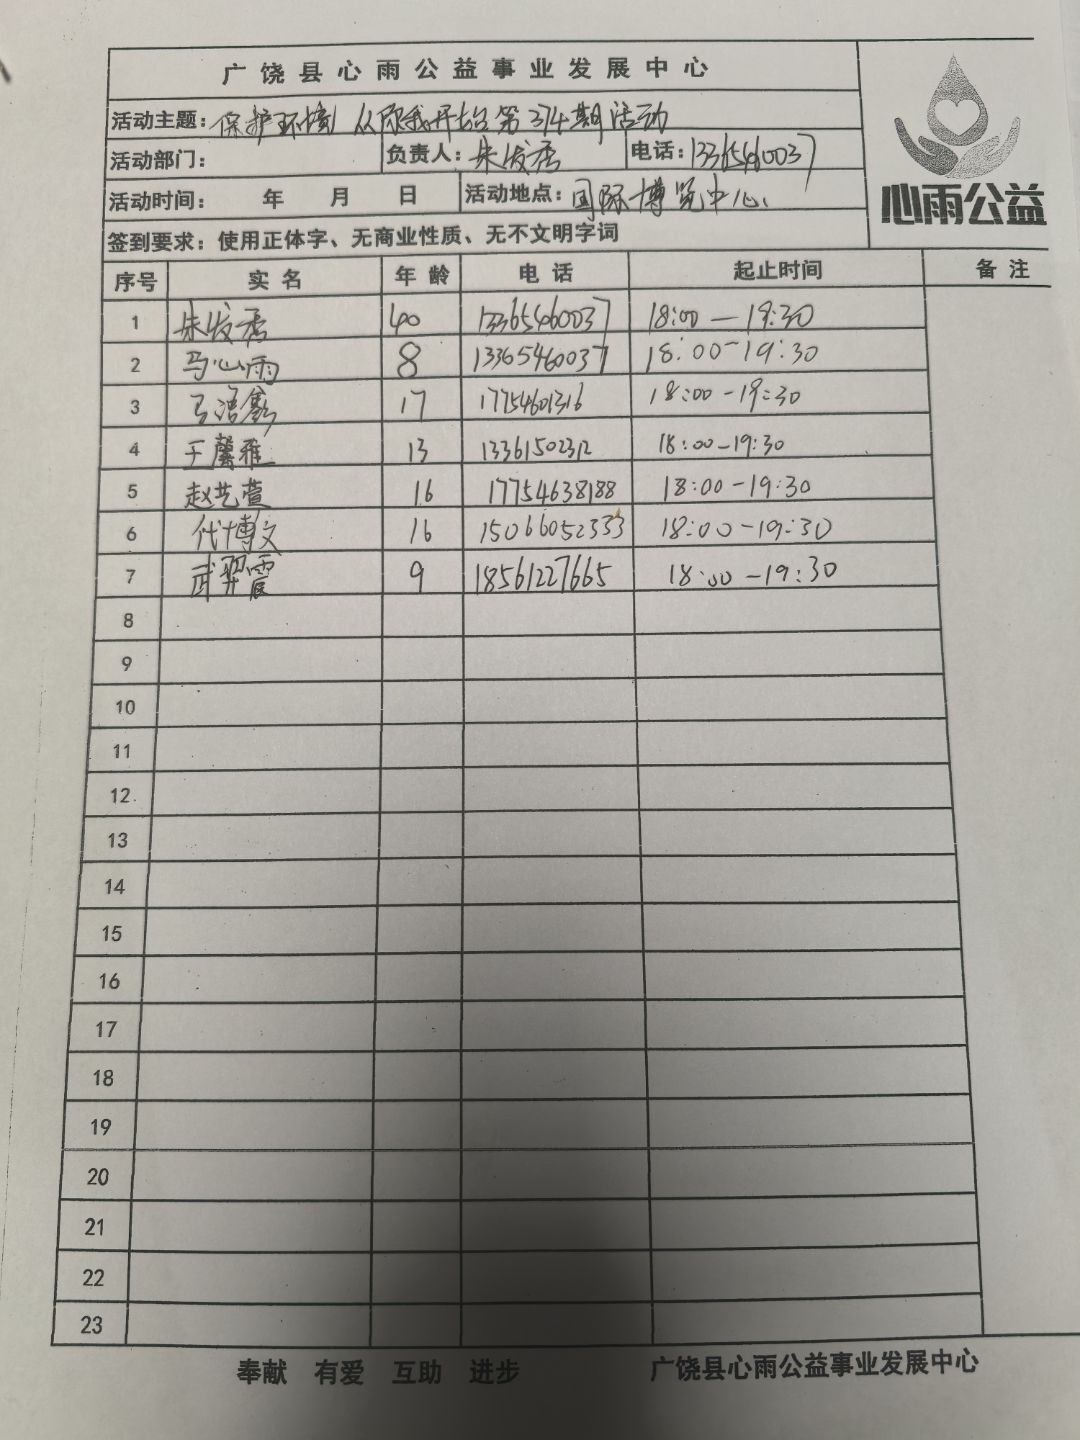 广饶县心雨公益事业发展中心
活动主题：保护环境 从你我开始第374期活动
活动部门： 负责人：朱发秀 电话：13365460037
活动时间： 年 月 日 活动地点：国际博览中心
心雨公益
签到要求：使用正体字、无商业性质、无不文明字词
序号 实名 年龄 电话 起止时间 备注
1 朱发秀 40 13365460037 18:00—19:30
2 马心雨 8 13365460037 18:00-19:30
3 17 17754601316 18:00-19:30
4 王馨雅 13 13361502312 18:00-19:30
5 赵艺萱 16 17754638188 18:00-19:30
6 代博文 16 15066052333 18:00-19:30
7 武霞 9 18561227665 18:00-19:30
8
9
10
11
12
13
14
15
16
17
18
19
20
21
22
23
奉献 有爱 互助 进步 广饶县心雨公益事业发展中心